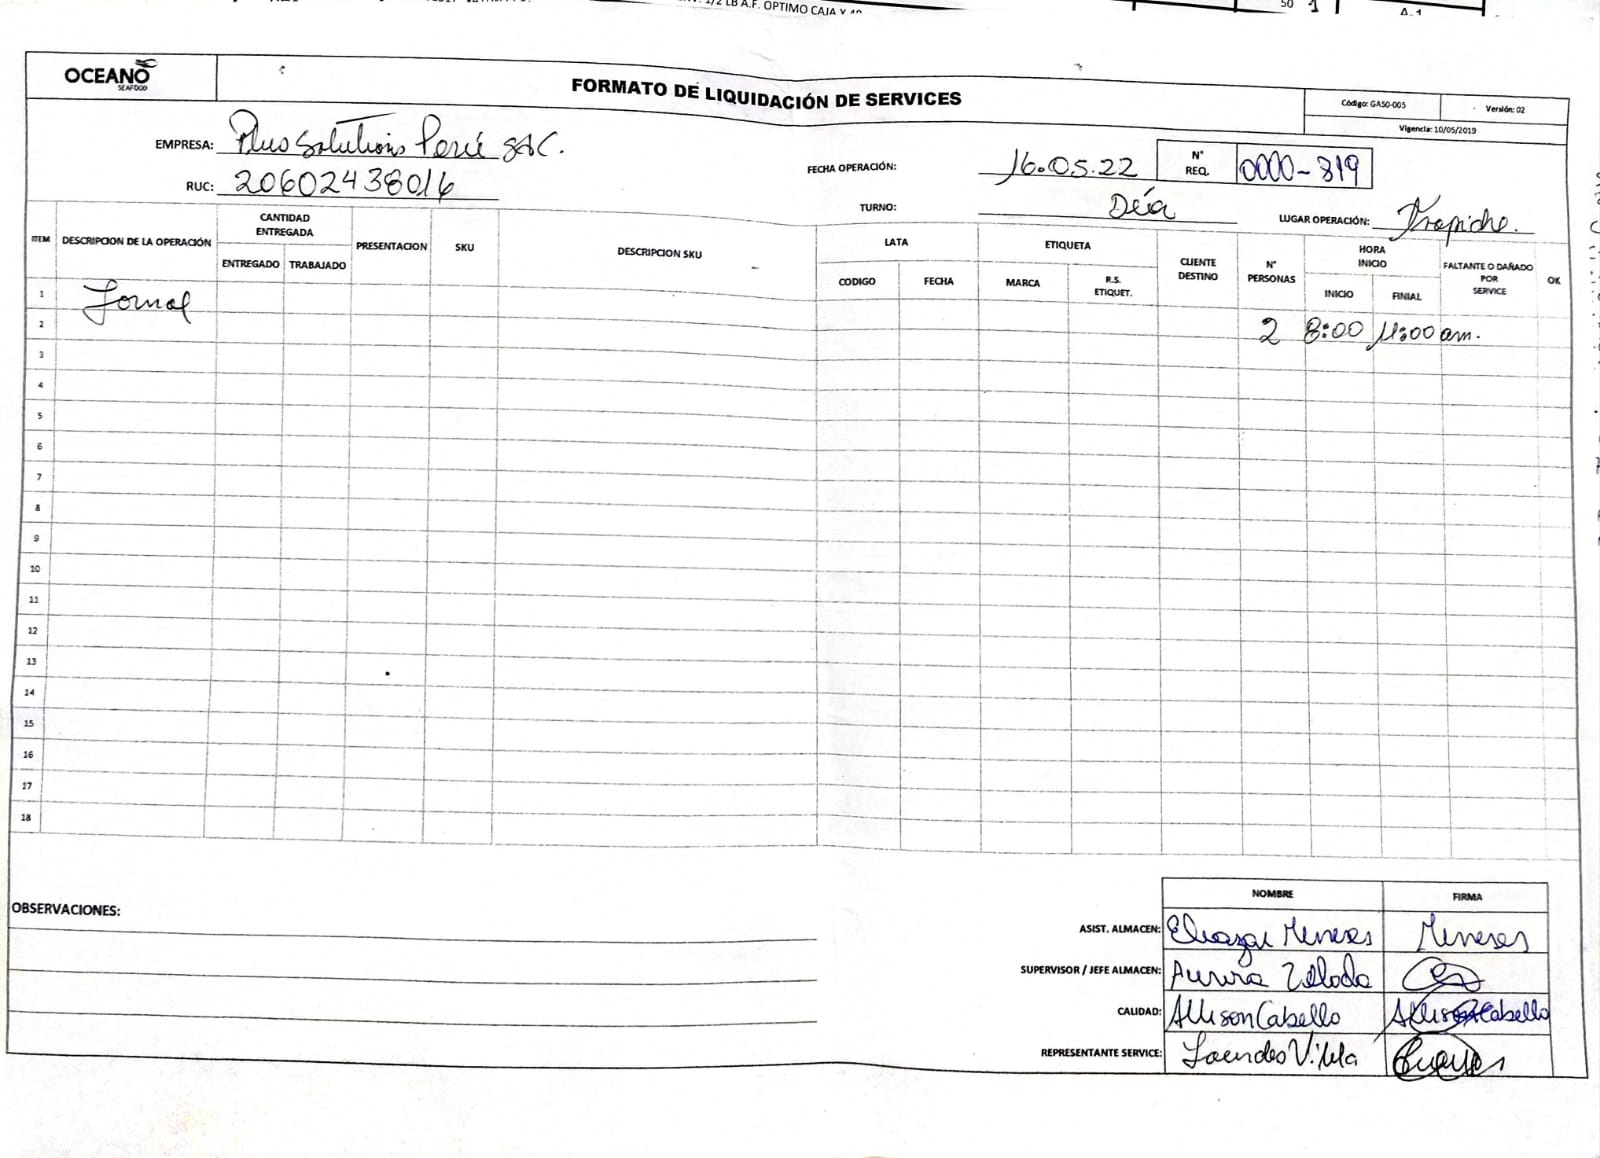 1/2 LB A.F. OPTIMO CAJA X 48
50 1
A-1
OCEANO
SEAFOOD
FORMATO DE LIQUIDACIÓN DE SERVICES
Código: GA50-005
Versión: 02
Vigencia: 10/05/2019
EMPRESA: Plus Solutions Perú SAC.
FECHA OPERACIÓN: 16.05.22
N° REQ. 0000-819
RUC: 20602438016
TURNO: Día
LUGAR OPERACIÓN: Trapiche.
ITEM DESCRIPCION DE LA OPERACIÓN CANTIDAD ENTREGADA PRESENTACION SKU DESCRIPCION SKU LATA ETIQUETA CLIENTE DESTINO N° PERSONAS HORA INICIO FALTANTE O DAÑADO POR SERVICE OK
ENTREGADO TRABAJADO CODIGO FECHA MARCA R.S. ETIQUET. INICIO FINIAL
1 Jornal
2 2 8:00 11:00 am.
3
4
5
6
7
8
9
10
11
12
13
14
15
16
17
18
OBSERVACIONES:
NOMBRE FIRMA
ASIST. ALMACEN: Eleazar Meneses Meneses
SUPERVISOR / JEFE ALMACEN: Aurora
CALIDAD: Allison Cabello Allison Cabello
REPRESENTANTE SERVICE: Lourdes Vilela